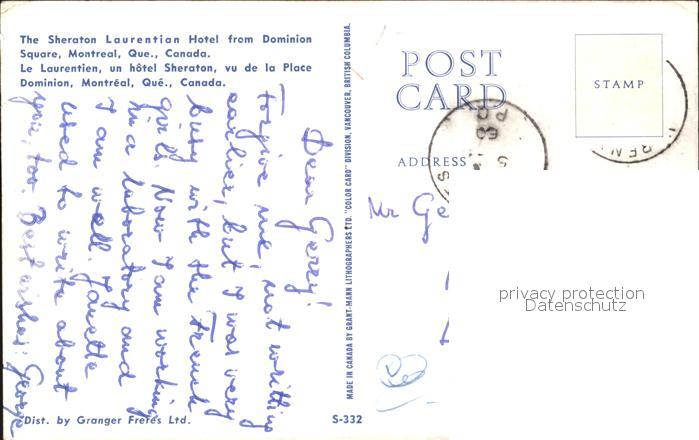 The Sheraton Laurentian Hotel from Dominion
Square, Montreal, Que., Canada.
Le Laurentien, un hôtel Sheraton, vu de la Place
Dominion, Montréal, Qué., Canada.
Dear Gerry!
Forgive me, not writting
earlier, but I was very
busy with the French
girls. Now I am working
in a laboratory and
I am well. Janette
used to write about
you, too. Best wishes: George
Dist. by Granger Freres Ltd.
S-332
MADE IN CANADA BY GRANT-MANN LITHOGRAPHERS LTD. "COLOR CARD" DIVISION, VANCOUVER, BRITISH COLUMBIA.
POST
CARD
STAMP
ADDRESS
Mr Ge
privacy protection
Datenschutz